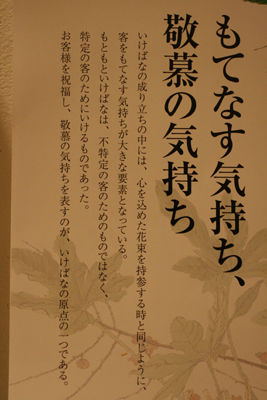 もてなす気持ち、
敬慕の気持ち
いけばなの成り立ちの中には、心を込めた花束を持参する時と同じように、
客をもてなす気持ちが大きな要素となっている。
もともといけばなは、不特定の客のためのものではなく、
特定の客のためにいけるものであった。
お客様を祝福し、敬慕の気持ちを表すのが、いけばなの原点の一つである。